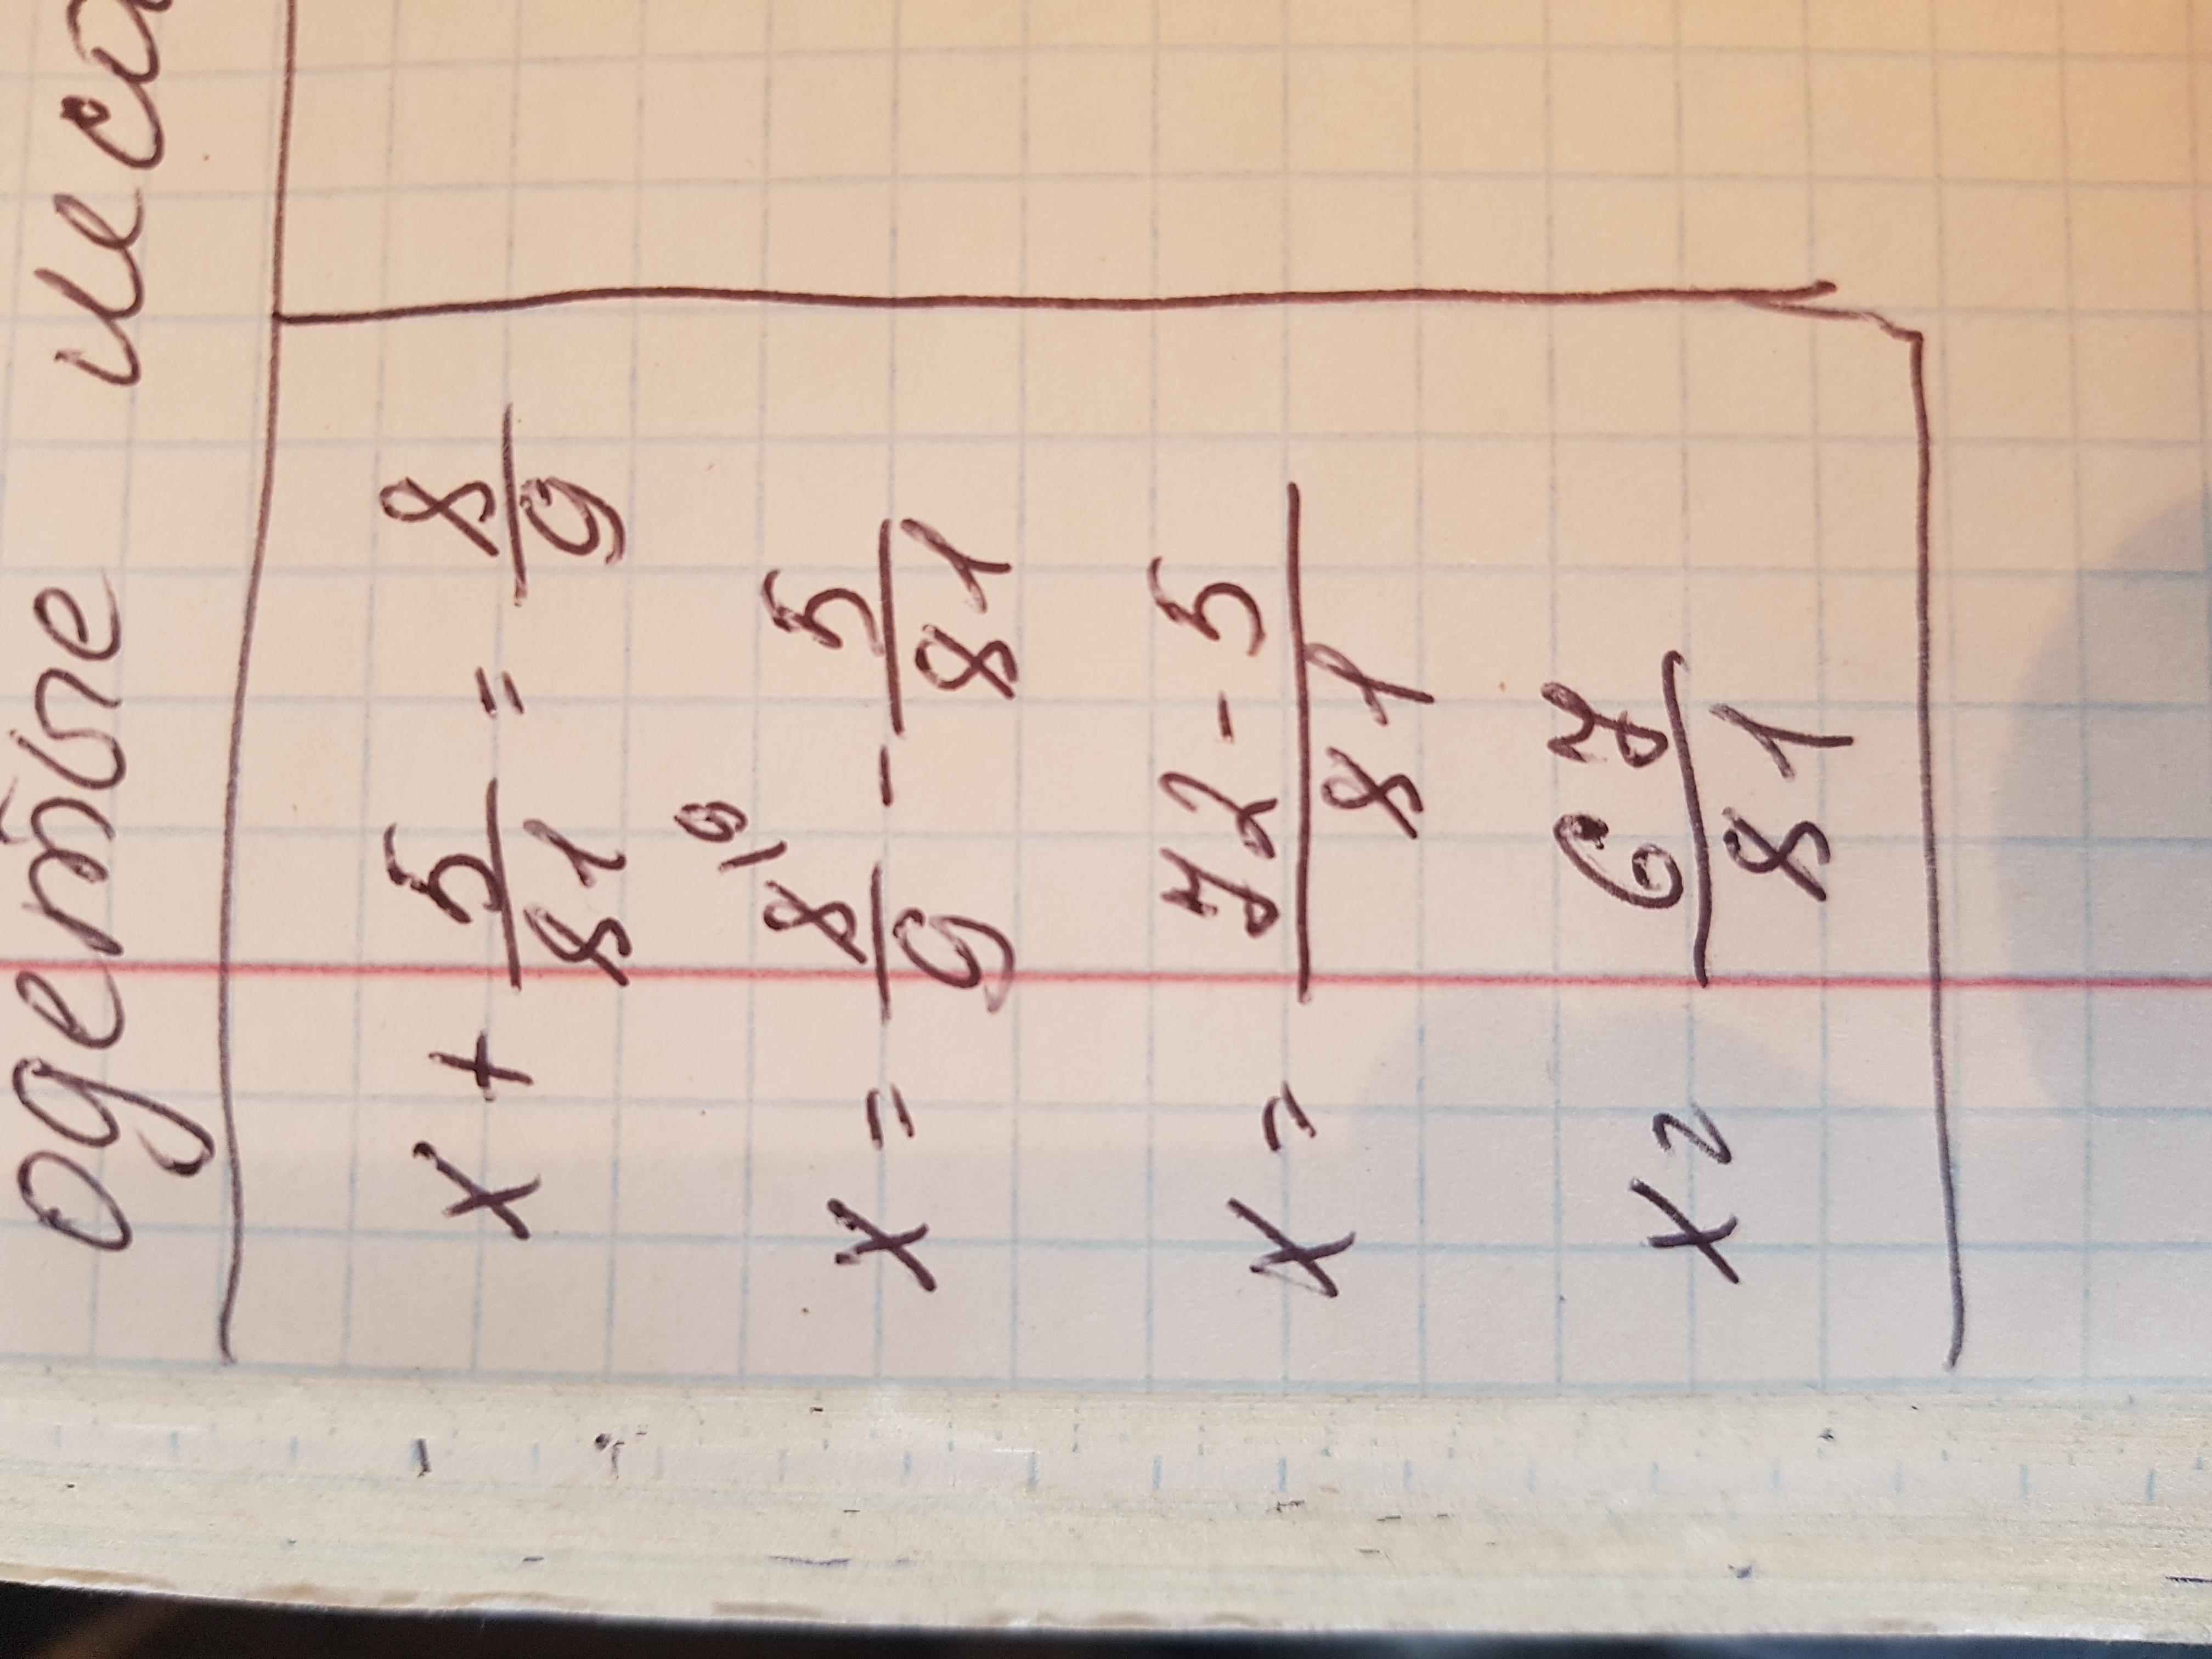 одетые
x + 5/81 = 8/9
x = 8/9 \9 - 5/81
x = 72-5/81
x = 67/81